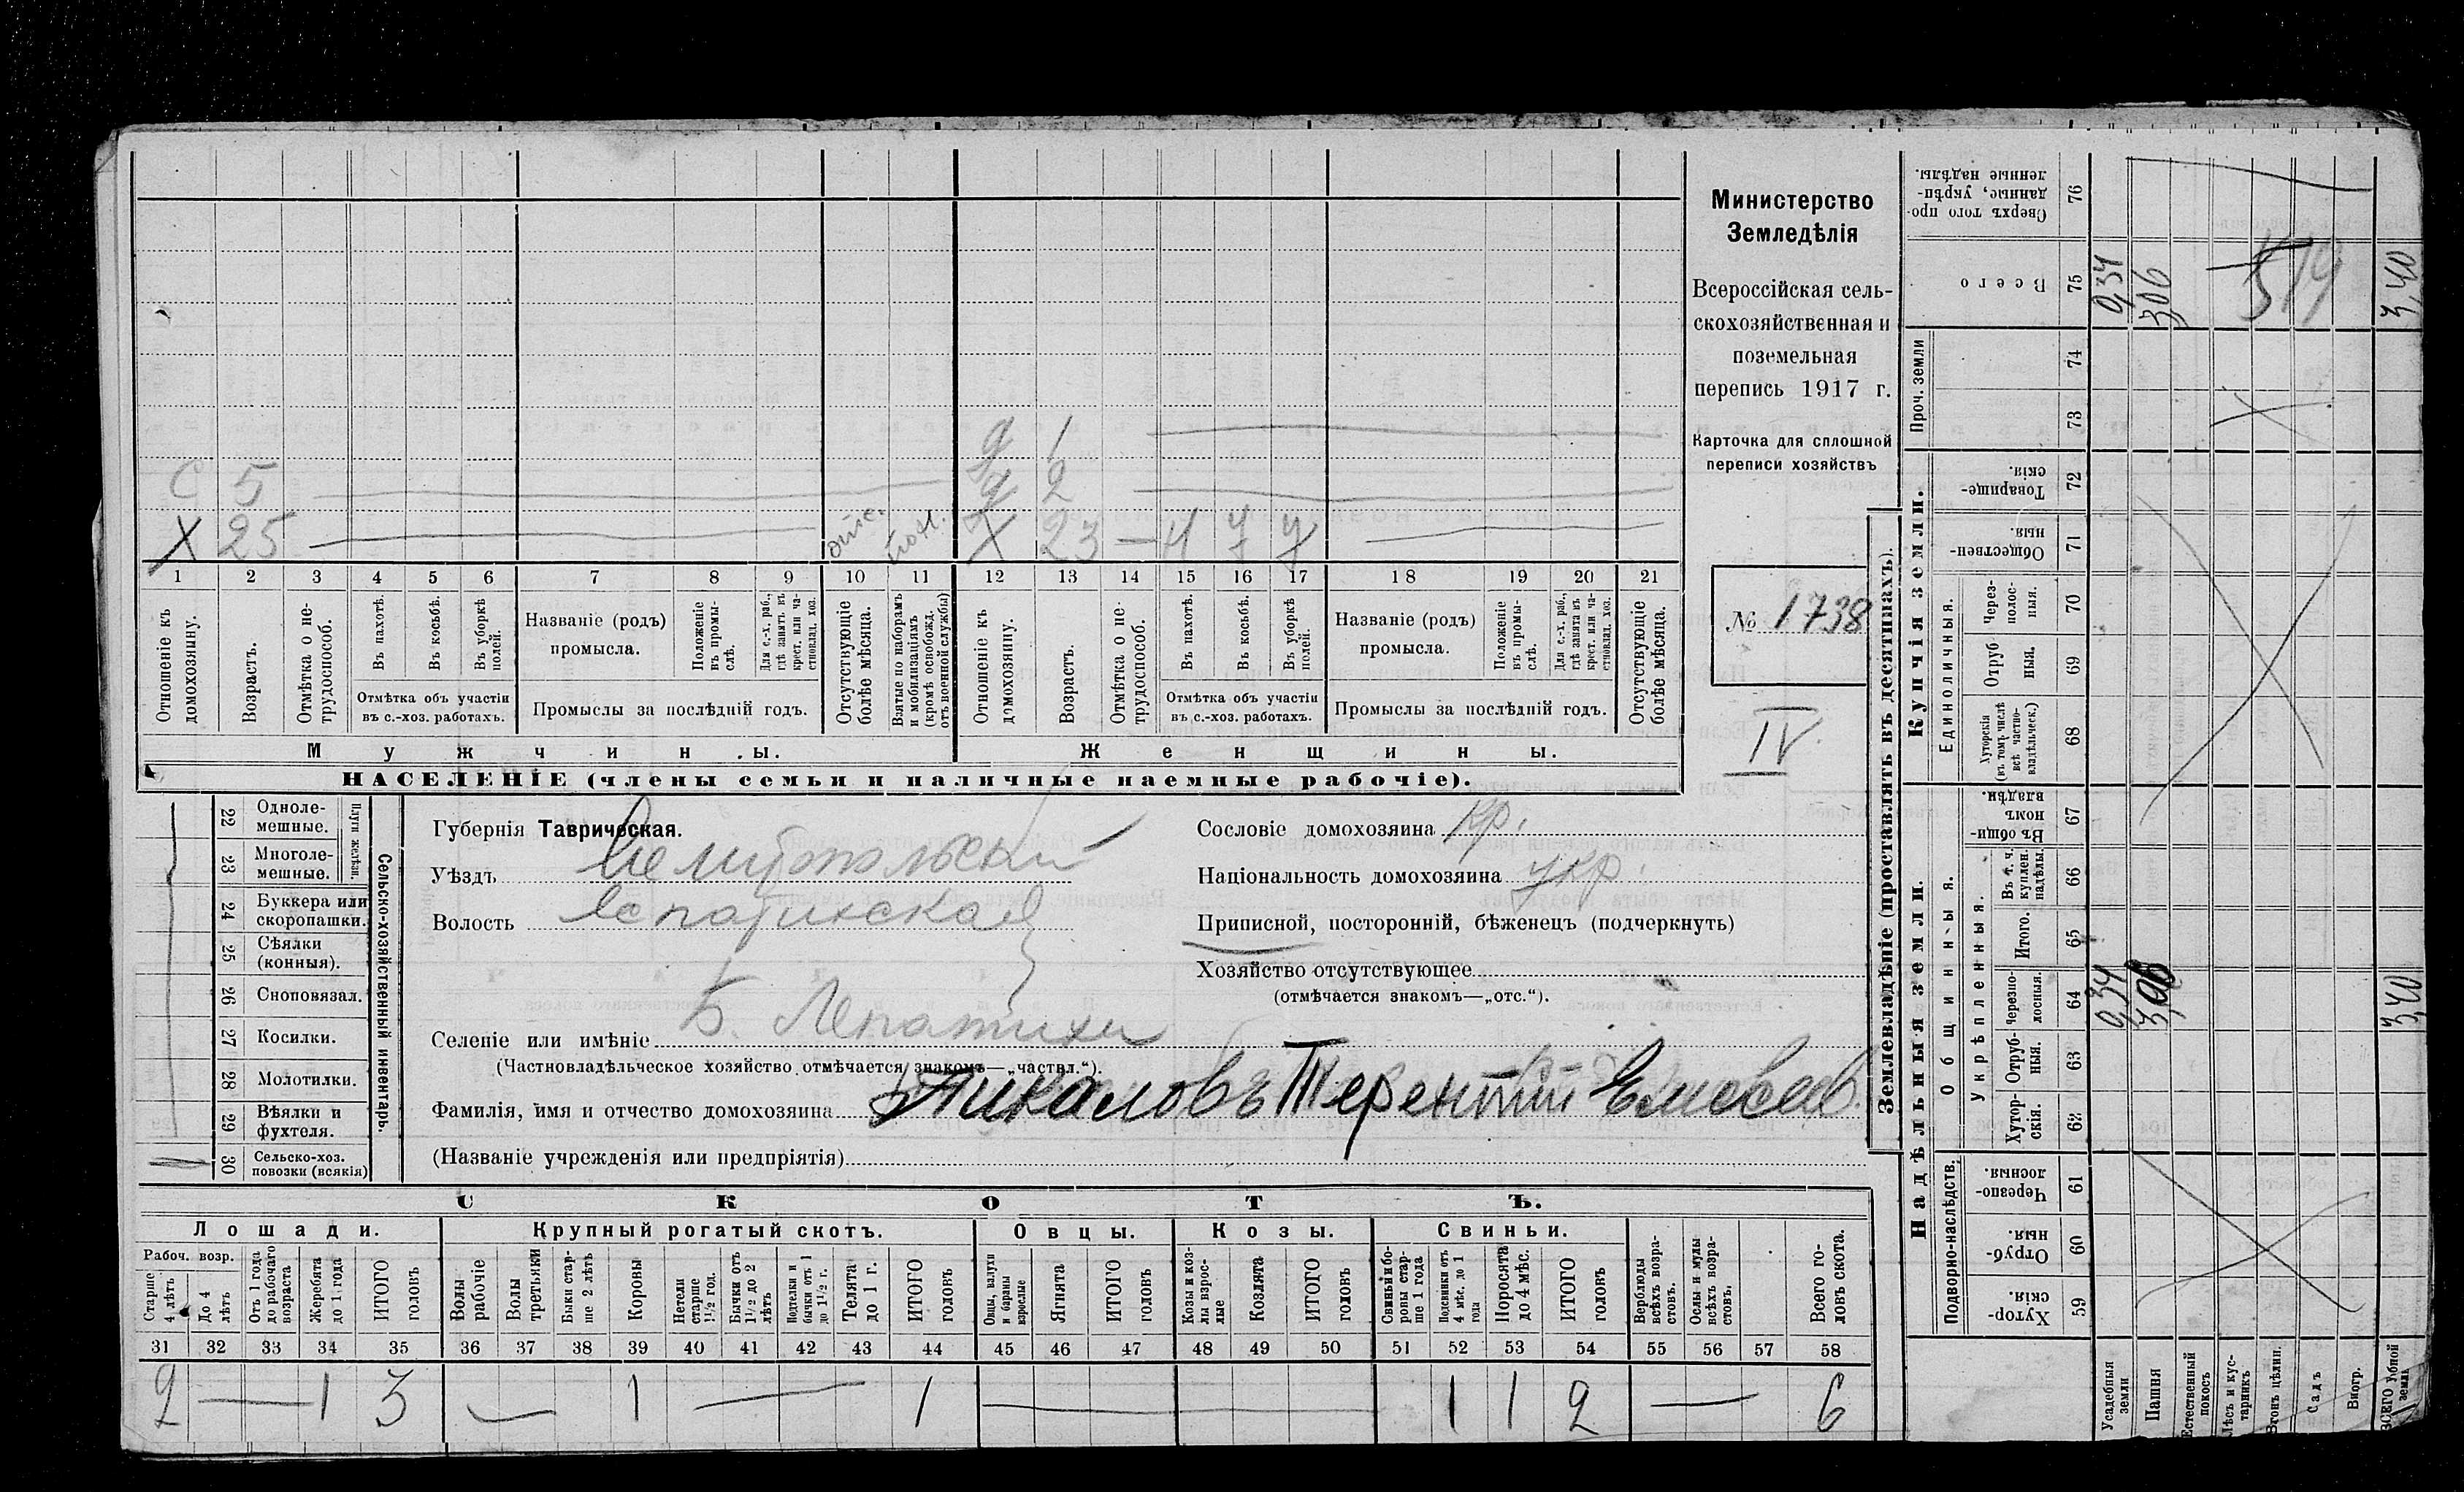 д 1
с 5 д 2
X 25 отс. моб. X 23 — ч ч ч
1 2 3 4 5 6 7 8 9 10 11 12 13 14 15 16 17 18 19 20 21
Отношеніе къ домохозяину.
Возрастъ.
Отмѣтка о нетрудоспособ.
Въ пахотѣ.
Въ косьбѣ.
Въ уборкѣ полей.
Отмѣтка объ участіи
въ с.-хоз. работахъ.
Названіе (родъ)
промысла.
Положеніе въ промыслѣ.
Для с.-х. раб., гдѣ занятъ въ крест. или частновлад. хоз.
Промыслы за послѣдній годъ.
Отсутствующіе болѣе мѣсяца.
Взятые по наборамъ и мобилизаціямъ (кромѣ освобожд. отъ военной службы)
Отношеніе къ домохозяину.
Возрастъ.
Отмѣтка о нетрудоспособ.
Въ пахотѣ.
Въ косьбѣ.
Въ уборкѣ полей.
Отмѣтка объ участіи
въ с.-хоз. работахъ.
Названіе (родъ)
промысла.
Положеніе въ промыслѣ.
Для с.-х. раб., гдѣ занята въ крест. или частновлад. хоз.
Промыслы за послѣдній годъ.
Отсутствующіе болѣе мѣсяца.
Мужчины. Женщины.
НАСЕЛЕНІЕ (члены семьи и наличные наемные рабочіе).
Министерство
Земледѣлія
Всероссійская сель-
скохозяйственная и
поземельная
перепись 1917 г.
Карточка для сплошной
переписи хозяйствъ
№ 1738
IV
Сельско-хозяйственный инвентарь.
Плуги желѣзн.
22 Одноле-
мешные.
23 Многоле-
мешные.
24 Буккера или
скоропашки.
25 Сѣялки
(конныя).
26 Сноповязал.
27 Косилки.
28 Молотилки.
29 Вѣялки и
фухтеля.
30 Сельско-хоз.
повозки (всякія)
Губернія Таврическая.
Уѣздъ Мелитопольскій
Волость Лепатихская
Селеніе или имѣніе Б. Лепатиха
(Частновладѣльческое хозяйство отмѣчается знакомъ—„частвл.“).
Фамилія, имя и отчество домохозяина Пикаловъ Терентій Елисеев.
(Названіе учрежденія или предпріятія)
Сословіе домохозяина кр.
Національность домохозяина укр.
Приписной, посторонній, бѣженец (подчеркнуть)
Хозяйство отсутствующее
(отмѣчается знакомъ—„отс.“).
СКОТЪ.
Лошади. Крупный рогатый скотъ. Овцы. Козы. Свиньи.
Рабоч. возр.
Старше 4 лѣтъ
До 4 лѣтъ
Отъ 1 года до рабочаго возраста
Жеребята до 1 года
ИТОГО головъ
Волы рабочіе
Волы третьяки
Быки старше 2 лѣтъ
Коровы
Нетели старше 1½ год.
Бычки отъ 1½ до 2 лѣтъ
Подтелки и бычки отъ 1 до 1½ г.
Телята до 1 г.
ИТОГО головъ
Овцы, валухи и бараны взрослые
Ягнята
ИТОГО головъ
Козы и козлы взрослые
Козлята
ИТОГО головъ
Свиньи и боровы старше 1 года
Подсвинки отъ 4 мѣс. до 1 года
Поросята до 4 мѣс.
ИТОГО головъ
Верблюды всѣхъ возрастовъ.
Ослы и мулы всѣхъ возрастовъ.
Всего головъ скота.
31 32 33 34 35 36 37 38 39 40 41 42 43 44 45 46 47 48 49 50 51 52 53 54 55 56 57 58
2 — 1 3 — 1 — 1 — 1 1 2 — 6
Землевладѣніе (проставлять въ десятинахъ).
Надѣльныя земли. Купчія земли. Проч. земли
Подворно-наслѣдств.
Общинныя.
Укрѣпленныя.
Единоличныя.
Хуторскія. 59
Отрубныя. 60
Черезполосныя. 61
Хуторскія. 62
Отрубныя. 63
Черезполосныя. 64 0,34 3,06 3,40
Итого. 65
Въ т. ч. куплен. надѣлы. 66
Въ общинномъ владѣн. 67
Хуторскія (въ томъ числѣ всѣ частновладѣльческ.) 68
Отрубныя. 69
Черезполосныя. 70
Общественныя. 71
Товарищескія. 72
73
74
Всего 75 0,34 3,06 3,40
Сверхъ того проданные, укрѣпленные надѣлы. 76
Усадебныя земли
Пашня
Естественный покосъ
Лѣсъ и кустарникъ
Выгонъ цѣлин.
Садъ
Виогр.
ВСЕГО удобной земли